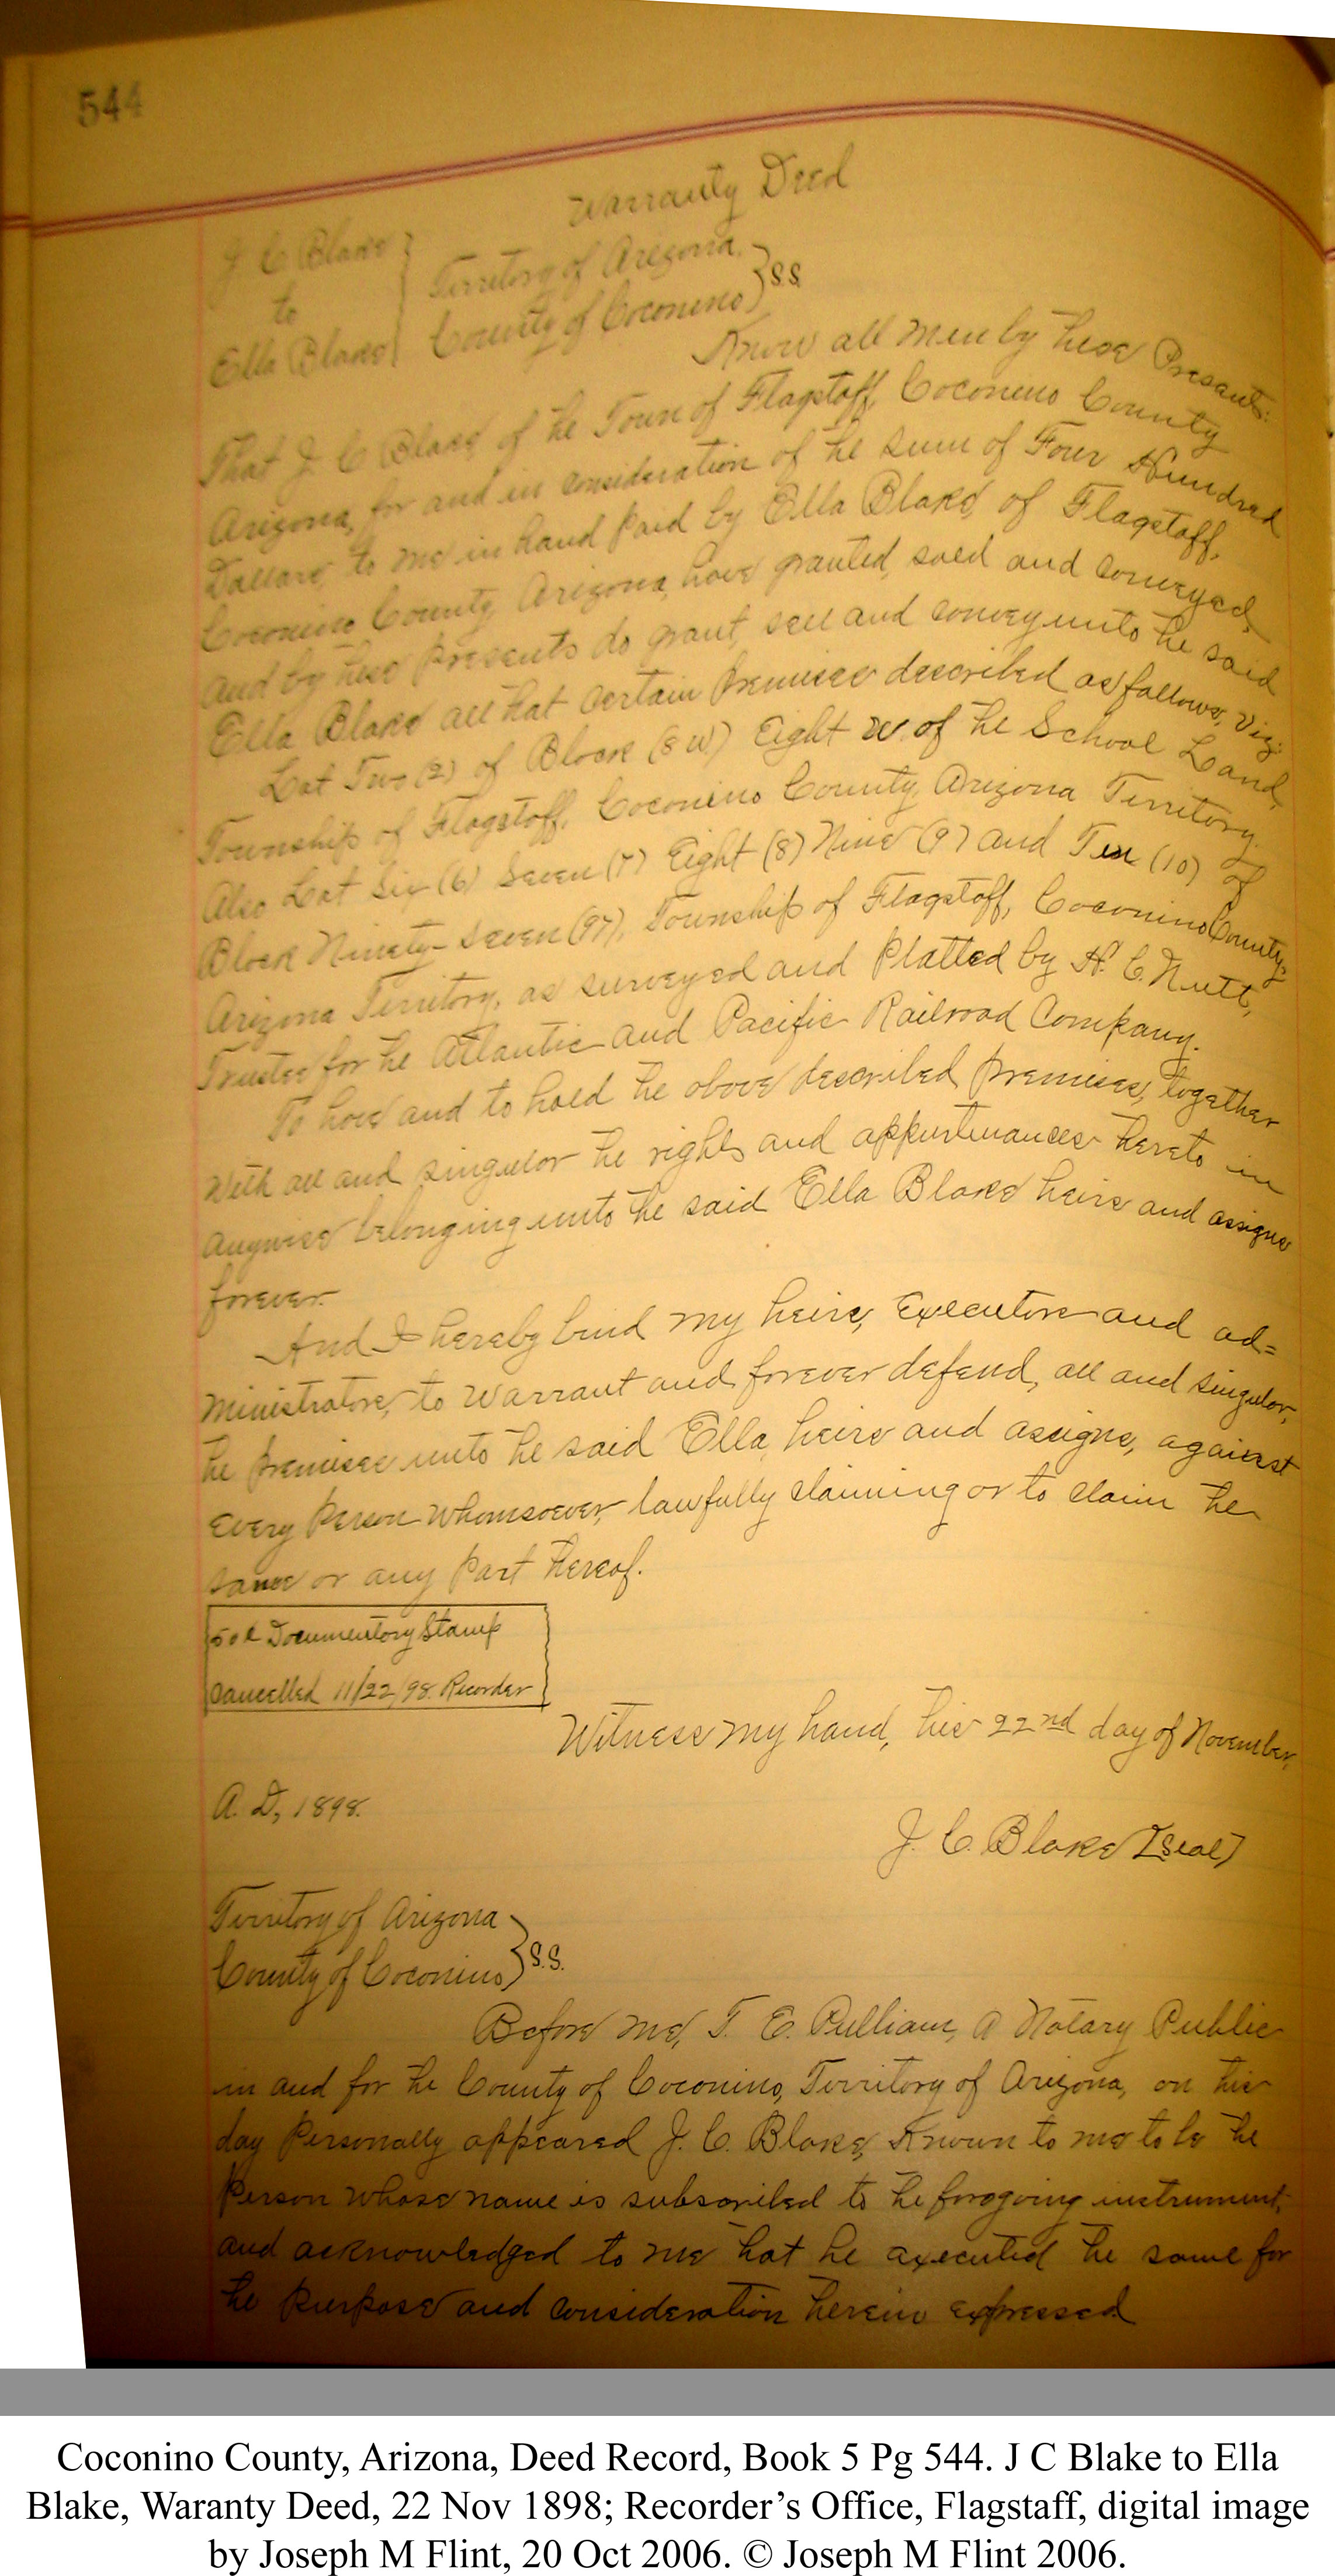 544
Warranty Deed
J. C Blake
to
Ella Blake
Territory of Arizona,
County of Coconino } S.S.
Know all men by these Presents:
That J. C Blake of the Town of Flagstaff, Coconino County
Arizona, for and in consideration of the sum of Four Hundred
Dollars, to me in hand paid by Ella Blake, of Flagstaff,
Coconino County, Arizona, have granted, sold and conveyed,
and by these Presents do grant, sell and convey unto the said
Ella Blake all that certain Premises described as follows, Viz:
Lot Two (2) of Block (8 W) Eight W. of the School Land,
Township of Flagstaff, Coconino County, Arizona Territory.
Also Lot Six (6) Seven (7) Eight (8) Nine (9) and Ten (10) of
Block Ninety-Seven (97), Township of Flagstaff, Coconino County,
Arizona Territory, as surveyed and Platted by H. C. Nutt,
Trustee for the Atlantic and Pacific Railroad Company.
To have and to hold the above described premises, together
With all and singular the rights and appurtenances thereto in
anywise belonging unto the said Ella Blake heirs and assigns
forever.
And I hereby bind my heirs, Executors and ad=
ministrators, to Warrant and forever defend, all and singular,
the premises unto the said Ella, heirs and assigns, against
Every Person Whomsoever, lawfully claiming or to claim the
same or any Part thereof.
50¢ Documentory Stamp
Cancelled 11/22/98. Recorder
Witness my hand, this 22nd day of November,
A. D, 1898.
J. C. Blake [Seal]
Territory of Arizona
County of Coconino } S.S.
Before me, T. E. Pulliam, A Notary Public
in and for the County of Coconino, Territory of Arizona, on this
day Personally appeared J. C. Blake, Known to me to be the
Person whose name is subscribed to the foregoing instrument,
and acknowledged to me that he executed the same for
the Purpose and consideration therein expressed
Coconino County, Arizona, Deed Record, Book 5 Pg 544. J C Blake to Ella
Blake, Waranty Deed, 22 Nov 1898; Recorder’s Office, Flagstaff, digital image
by Joseph M Flint, 20 Oct 2006. © Joseph M Flint 2006.